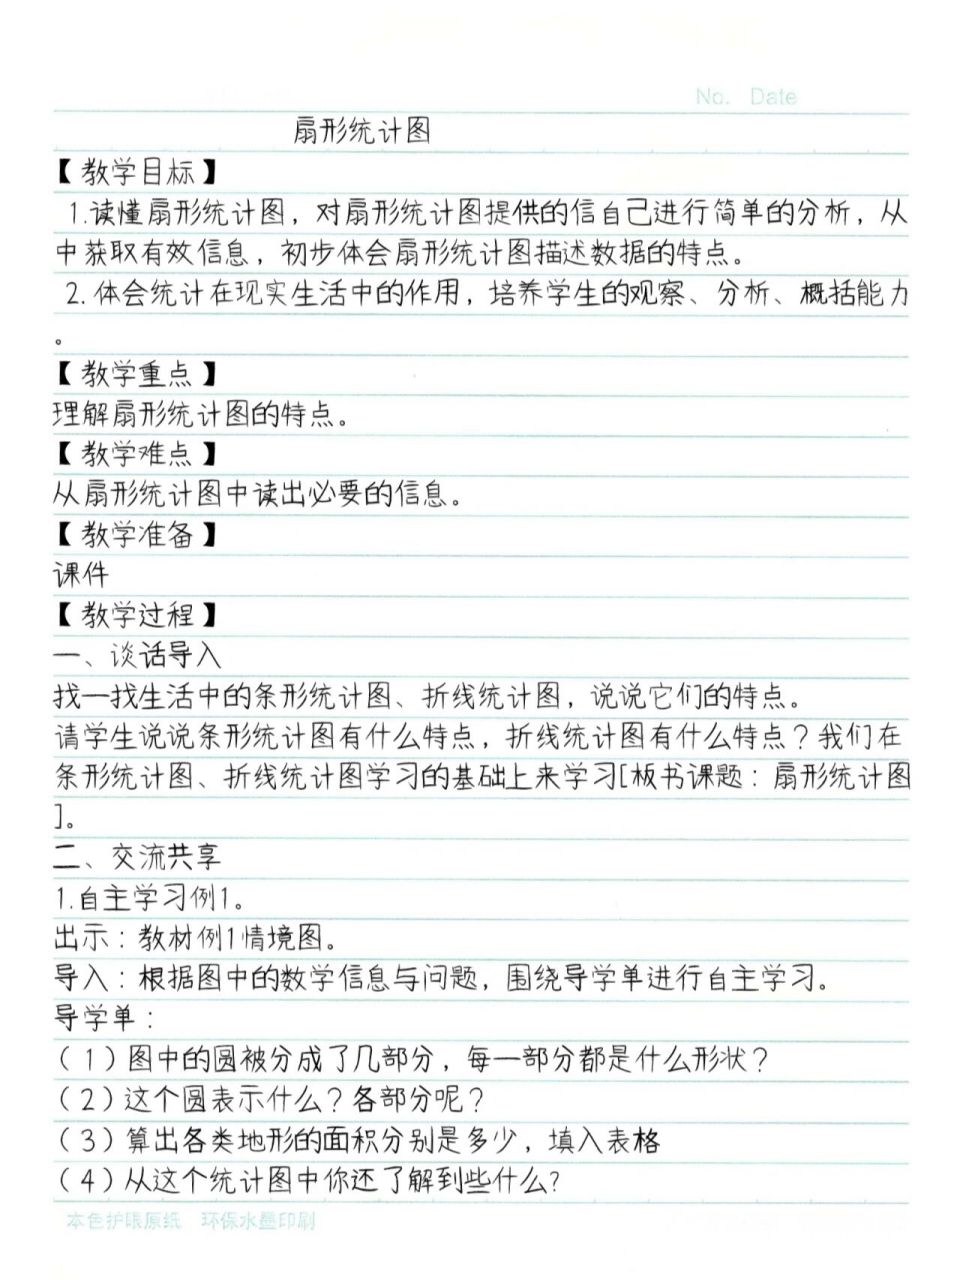 No. Date
扇形统计图
【教学目标】
1.读懂扇形统计图，对扇形统计图提供的信自己进行简单的分析，从
中获取有效信息，初步体会扇形统计图描述数据的特点。
2.体会统计在现实生活中的作用，培养学生的观察、分析、概括能力
。
【教学重点】
理解扇形统计图的特点。
【教学难点】
从扇形统计图中读出必要的信息。
【教学准备】
课件
【教学过程】
一、谈话导入
找一找生活中的条形统计图、折线统计图，说说它们的特点。
请学生说说条形统计图有什么特点，折线统计图有什么特点？我们在
条形统计图、折线统计图学习的基础上来学习[板书课题：扇形统计图
]。
二、交流共享
1.自主学习例1。
出示：教材例1情境图。
导入：根据图中的数学信息与问题，围绕导学单进行自主学习。
导学单：
（1）图中的圆被分成了几部分，每一部分都是什么形状？
（2）这个圆表示什么？各部分呢？
（3）算出各类地形的面积分别是多少，填入表格
（4）从这个统计图中你还了解到些什么?
本色护眼原纸 环保水墨印刷